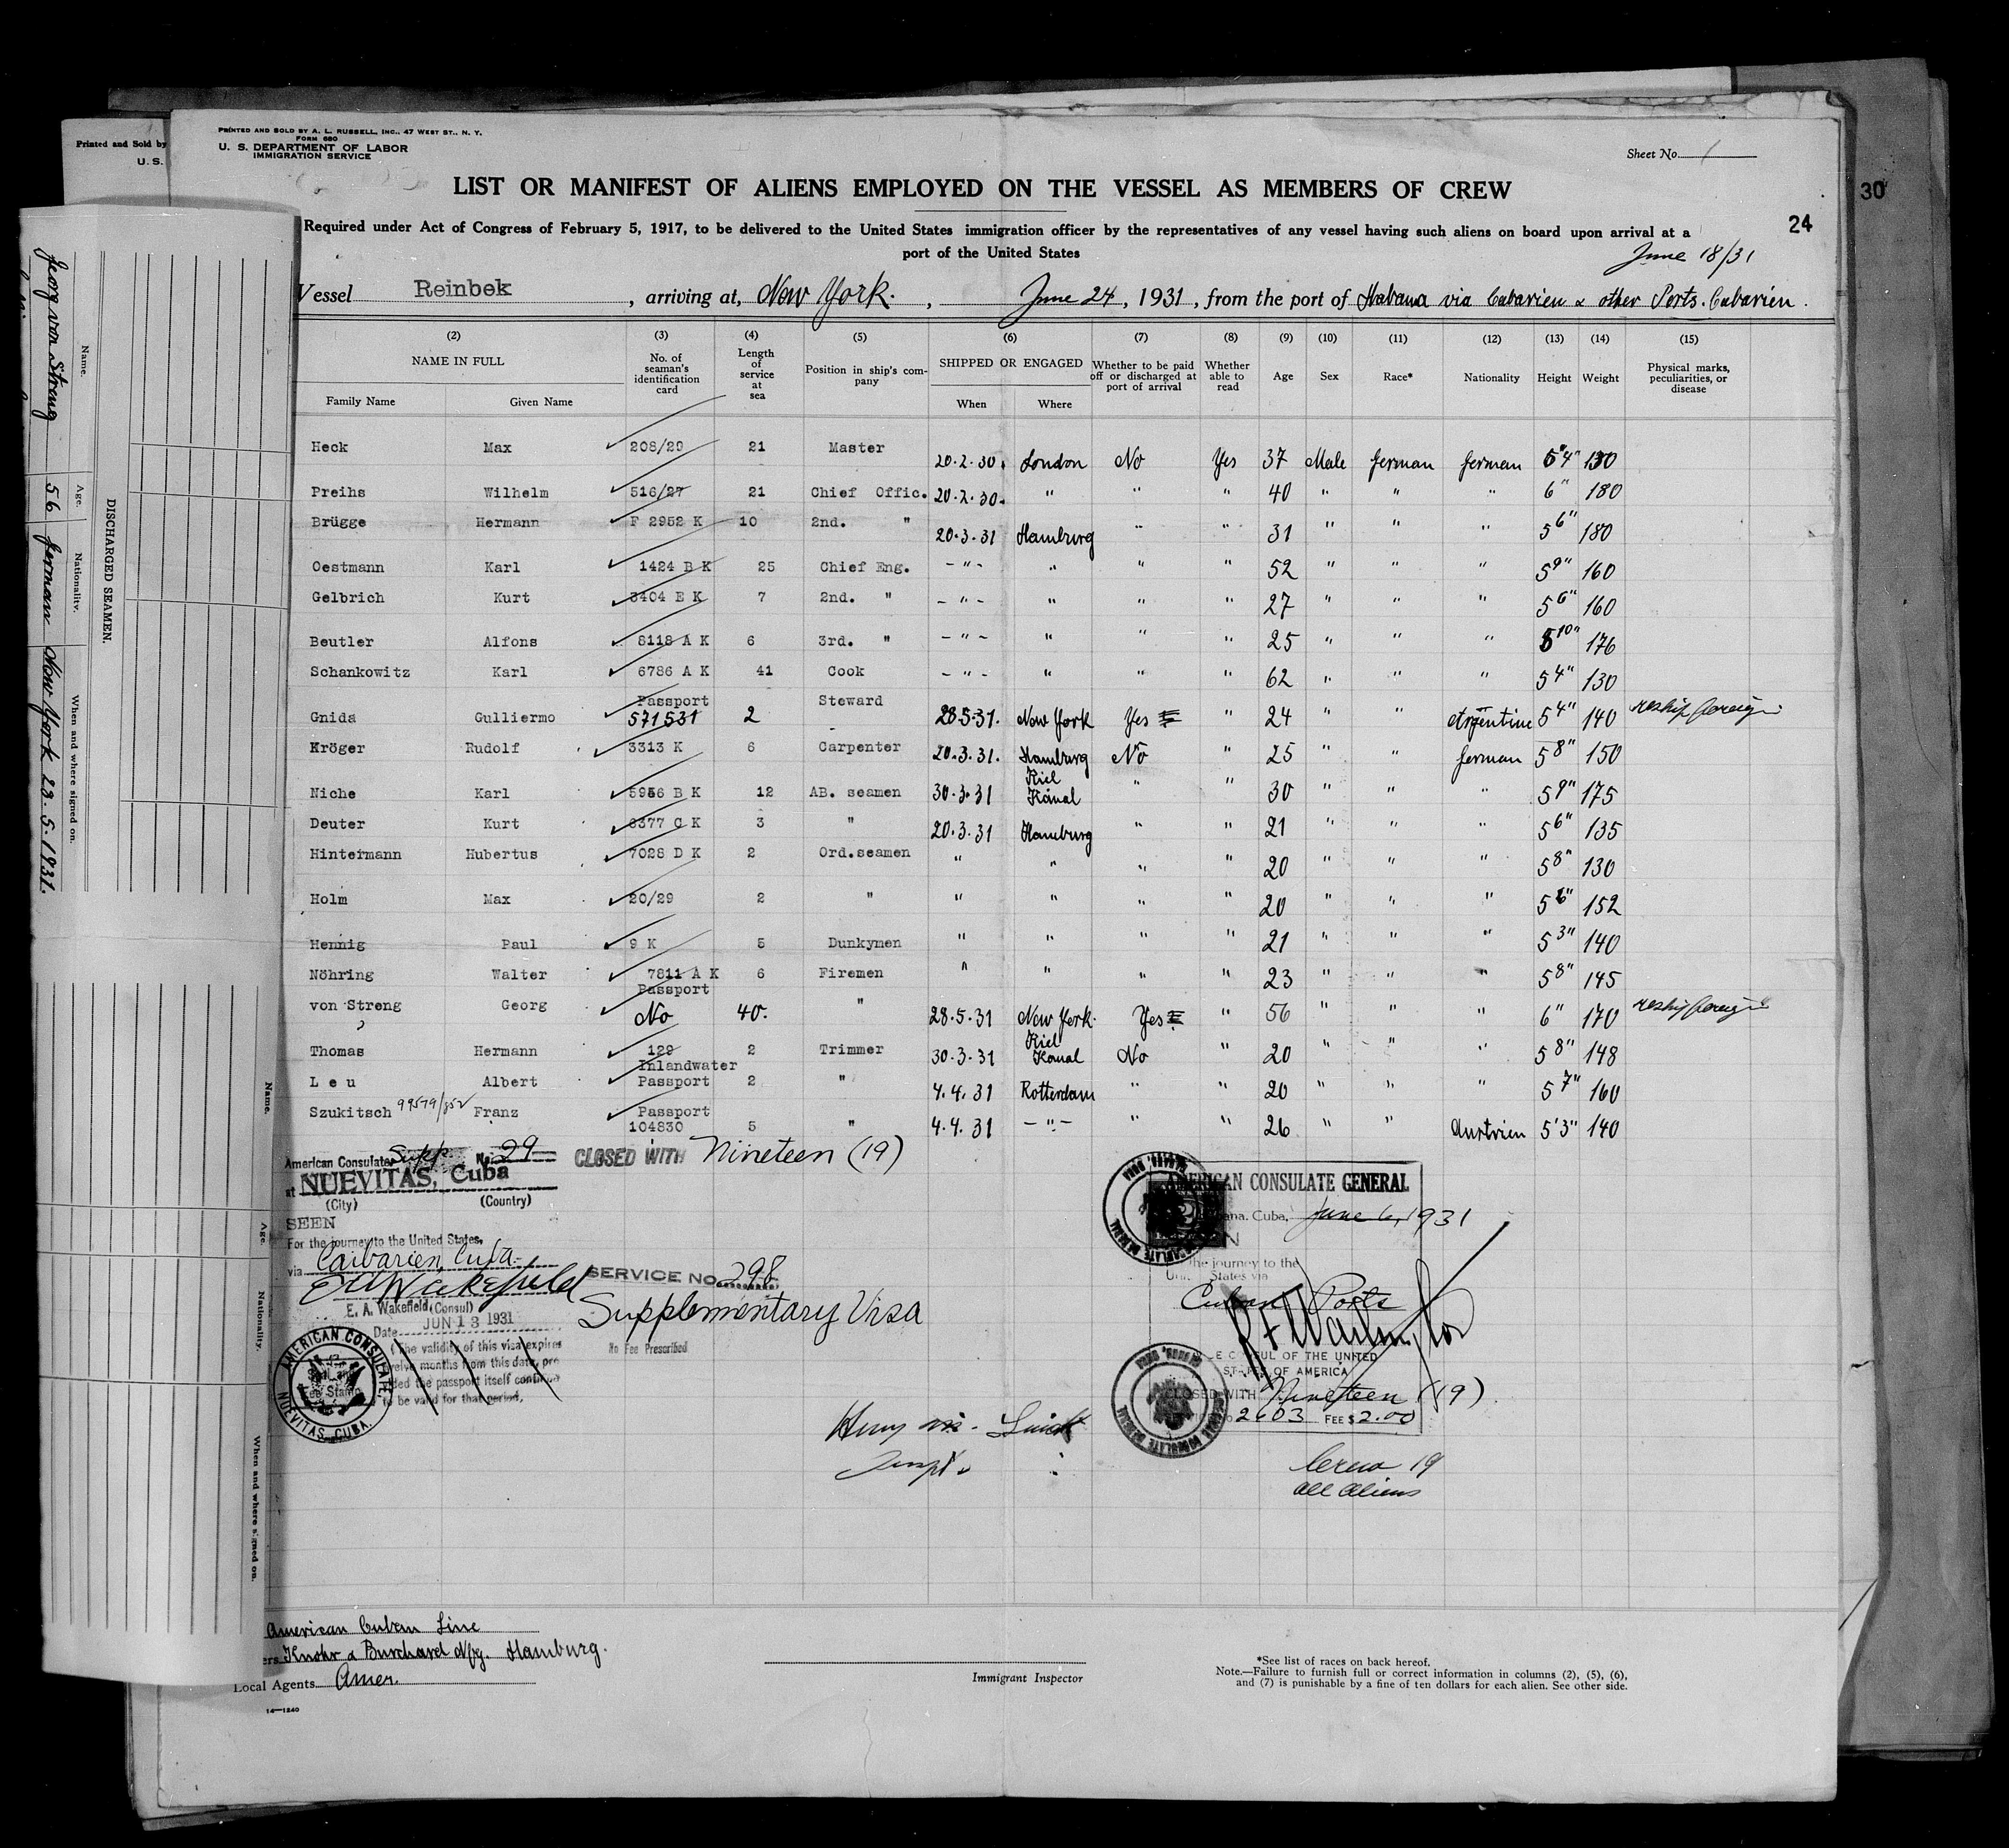 Printed and Sold by
U. S.
PRINTED AND SOLD BY A. L. RUSSELL, INC., 47 WEST ST., N. Y.
FORM 680
U. S. DEPARTMENT OF LABOR
IMMIGRATION SERVICE
Sheet No. 1
LIST OR MANIFEST OF ALIENS EMPLOYED ON THE VESSEL AS MEMBERS OF CREW
30
24
Required under Act of Congress of February 5, 1917, to be delivered to the United States immigration officer by the representatives of any vessel having such aliens on board upon arrival at a
port of the United States
June 18/31
Vessel Reinbek, arriving at, New York., June 24, 1931, from the port of Habana via Cabarien & other Ports. Cabarien.
(2) (3) (4) (5) (6) (7) (8) (9) (10) (11) (12) (13) (14) (15)
NAME IN FULL
Family Name Given Name
No. of seaman's identification card
Length of service at sea
Position in ship's company
SHIPPED OR ENGAGED
When Where
Whether to be paid off or discharged at port of arrival
Whether able to read
Age Sex Race* Nationality Height Weight
Physical marks, peculiarities, or disease
Heck Max 208/29 21 Master 20.2.30. London No Yes 37 Male German German 5"4" 130
Preihs Wilhelm 516/27 21 Chief Offic. 20.2.30. " " " 40 " " " 6" 180
Brügge Hermann F 2952 K 10 2nd. " 20.3.31 Hamburg " " 31 " " " 5 6" 180
Oestmann Karl 1424 B K 25 Chief Eng. - " - " " " 52 " " " 5 9" 160
Gelbrich Kurt 3404 E K 7 2nd. " - " - " " " 27 " " " 5 6" 160
Beutler Alfons 8118 A K 6 3rd. " - " - " " " 25 " " " 5 10" 176
Schankowitz Karl 6786 A K 41 Cook - " - " " " 62 " " " 5 4" 130
Gnida Gulliermo Passport 571531 2 Steward 28.5.31. New York Yes " 24 " " Argentine 5 4" 140 reship foreign
Kröger Rudolf 3313 K 6 Carpenter 20.3.31. Hamburg No " 25 " " German 5 8" 150
Niche Karl 5956 B K 12 AB. seamen 30.3.31 Kiel Kanal " " 30 " " " 5 9" 175
Deuter Kurt 8377 C K 3 " 20.3.31 Hamburg " " 21 " " " 5 6" 135
Hintermann Hubertus 7028 D K 2 Ord.seamen " " " " 20 " " " 5 8" 130
Holm Max 20/29 2 " " " " " 20 " " " 5 6" 152
Hennig Paul 9 K 5 Dunkymen " " " " 21 " " " 5 3" 140
Nöhring Walter 7811 A K 6 Firemen " " " " 23 " " " 5 8" 145
von Streng Georg Passport No 40. " 28.5.31 New York. Yes " 56 " " " 6" 170 reship foreign
Thomas Hermann 129 2 Trimmer 30.3.31 Kiel Kanal No " 20 " " " 5 8" 148
Leu Albert Inlandwater Passport 2 " 4.4.31 Rotterdam " " 20 " " " 5 7" 160
Szukitsch 99579/852 Franz Passport 104830 5 " 4.4.31 - " - " " 26 " " Austrien 5'3" 140
American Consulate Supp. No. 29
at NUEVITAS, Cuba
(City) (Country)
SEEN
For the journey to the United States,
via Caibarien, Cuba.
E A Wakefield
E. A. Wakefield (Consul)
Date JUN 13 1931
(The validity of this visa expires
twelve months from this date, pro
ded the passport itself continue
to be valid for that period.
AMERICAN CONSULATE,
NUEVITAS, CUBA.
Fee Stamp
CLOSED WITH Nineteen (19)
SERVICE NO. 298
Supplementary Visa
No Fee Prescribed
AMERICAN CONSULATE GENERAL
Habana. Cuba, June 6, 1931
the journey to the
United States via
Cuban Ports
CONSUL OF THE UNITED
STATES OF AMERICA
CLOSED WITH Nineteen (19)
2603 FEE $ 2.00
Crew 19
all aliens
American Cuban Line
Knöhr & Burchard Nfg. Hamburg.
Local Agents Amer.
14—1240
Immigrant Inspector
*See list of races on back hereof.
Note.—Failure to furnish full or correct information in columns (2), (5), (6),
and (7) is punishable by a fine of ten dollars for each alien. See other side.
DISCHARGED SEAMEN.
Name. Age. Nationality. When and where signed on.
Georg von Streng 56 German New York 28.5.1931.
Name. Age. Nationality. When and where signed on.